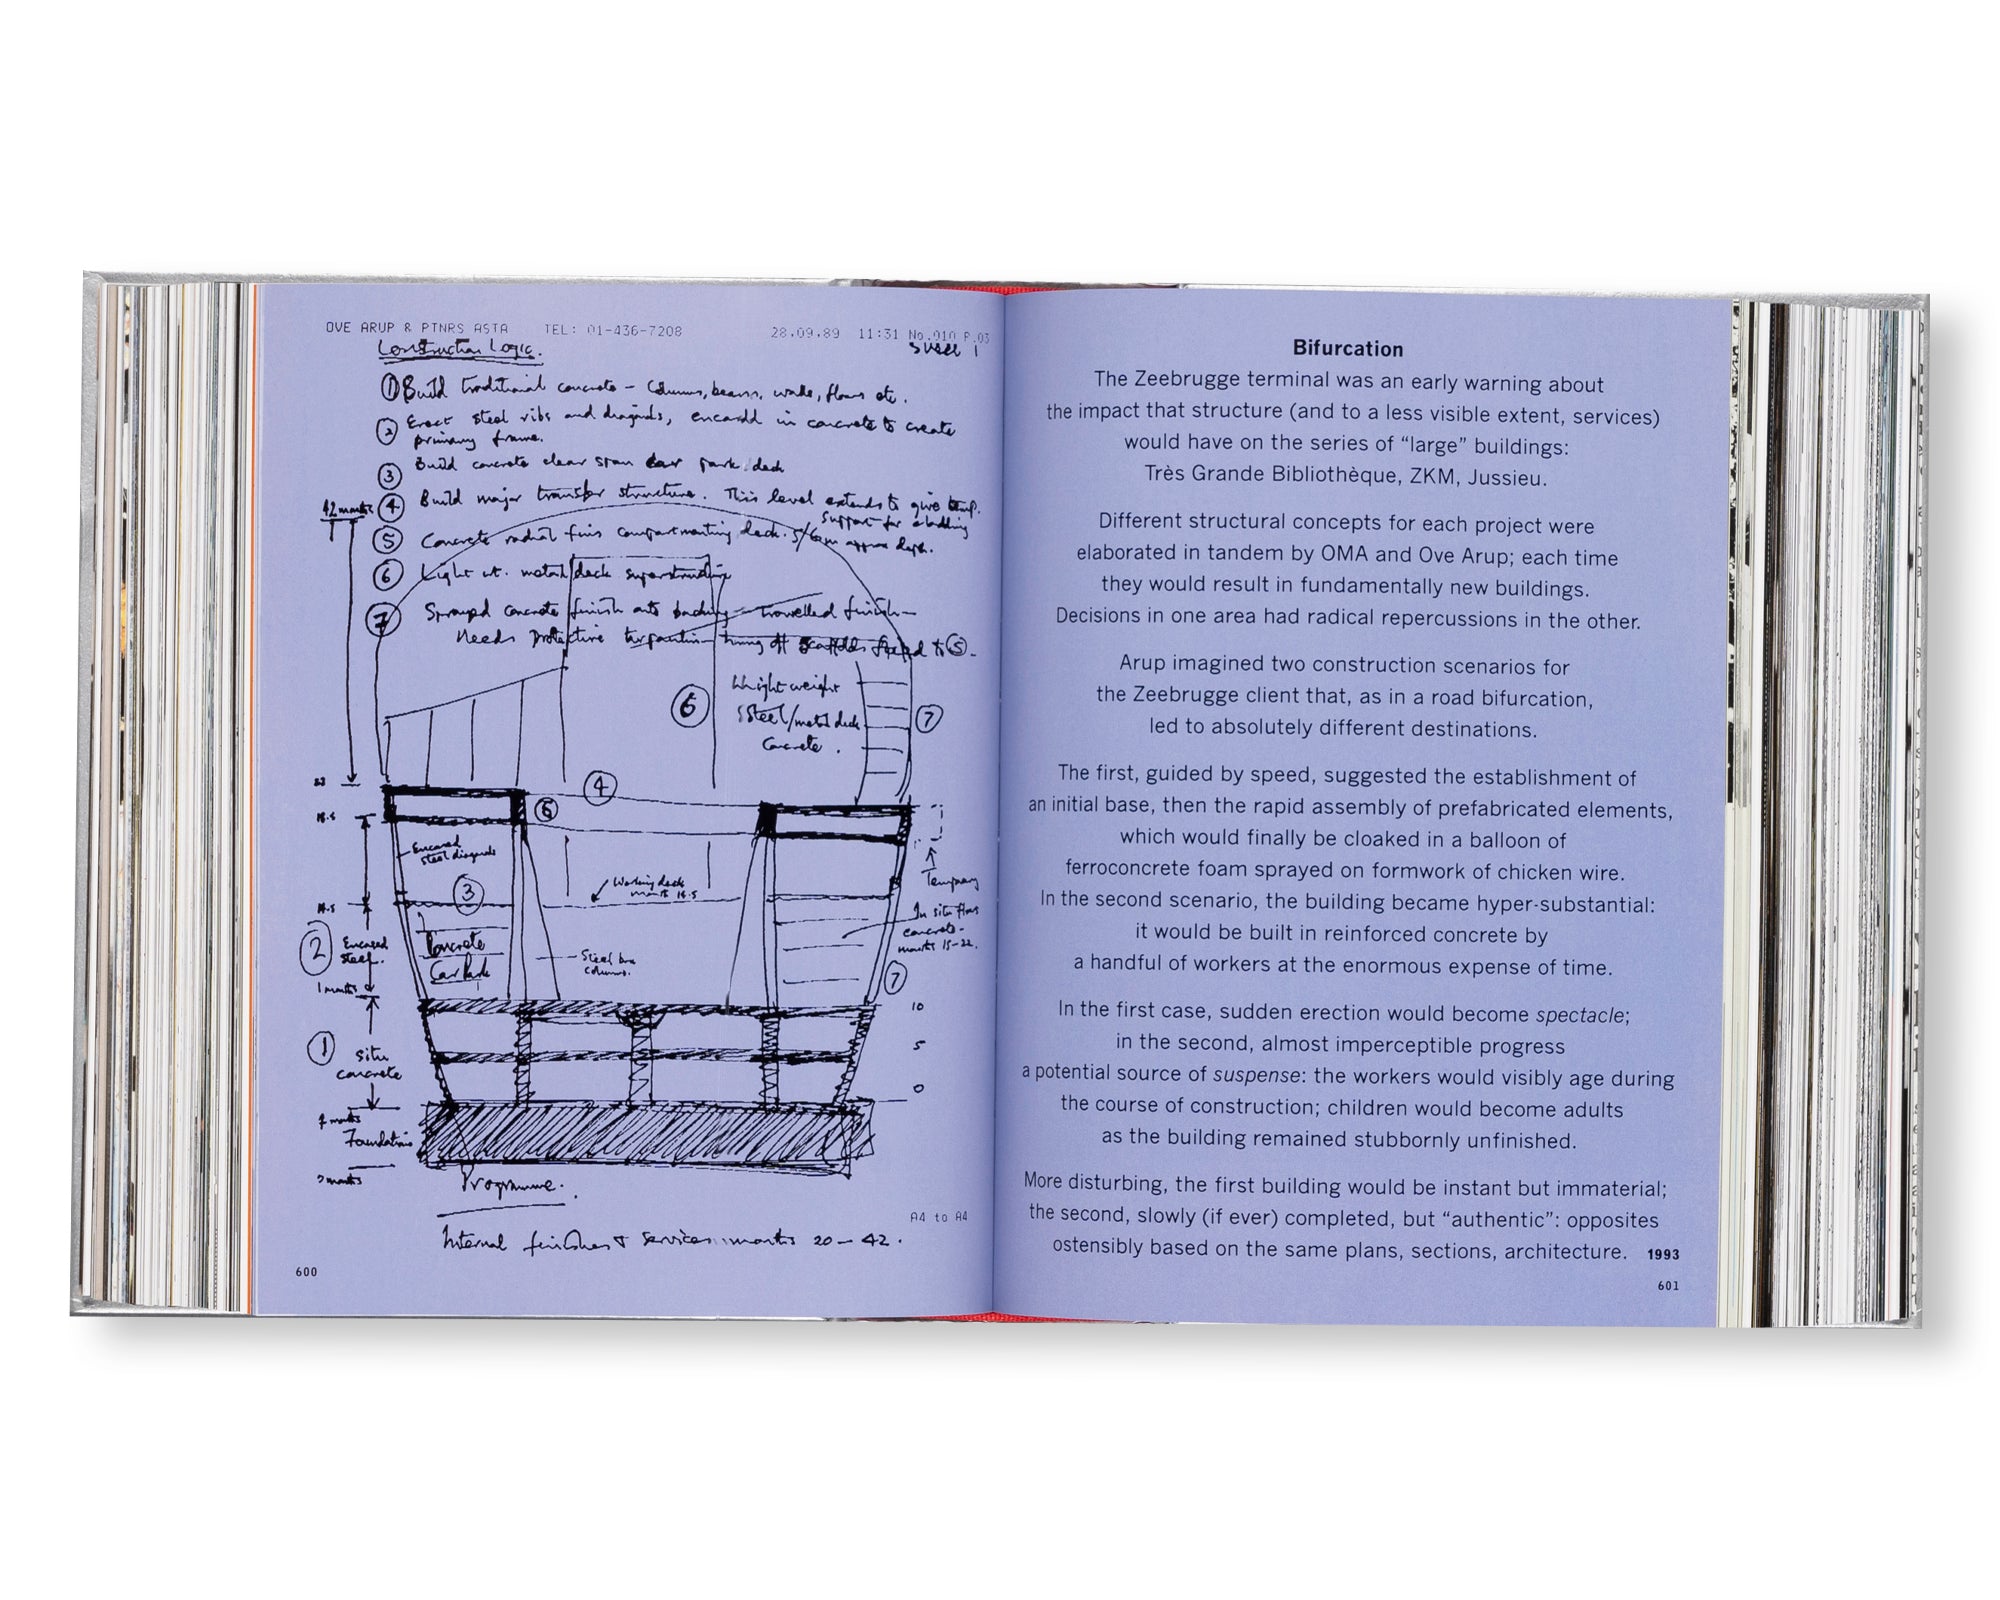 OVE ARUP & PTNRS ASTA TEL: 01-436-7208 28.09.89 11:31 No.010 P.03
Construction Logic.
① Build traditional concrete - Columns, beams, walls, floors etc.
② Erect steel ribs and diagrids, encased in concrete to create
primary frame.
③ Build concrete clear span car park deck
④ Build major transfer structure. This level extends to give temp.
support for cladding
⑤ Concrete radial fins compartmenting deck. 5/6m approx depth.
⑥ Light wt. metal deck superstructure
⑦ Sprayed concrete finish onto backing - trowelled finish -
Needs protective tarpaulin to ⑤.
42 months
⑥
Lightweight
Steel/metal deck
Concrete.
⑦
④
⑤
Encased
steel diagrids
③
Working deck
month 14.5
Temporary
In situ floors
concrete -
months 15-22.
② Encased
Steel.
Concrete
Car Park
Steel box
columns.
⑦
10
① Situ
concrete
5
0
Foundations
Programme.
A4 to A4
Internal finishes & services months 20 - 42.
600
Bifurcation
The Zeebrugge terminal was an early warning about
the impact that structure (and to a less visible extent, services)
would have on the series of “large” buildings:
Très Grande Bibliothèque, ZKM, Jussieu.
Different structural concepts for each project were
elaborated in tandem by OMA and Ove Arup; each time
they would result in fundamentally new buildings.
Decisions in one area had radical repercussions in the other.
Arup imagined two construction scenarios for
the Zeebrugge client that, as in a road bifurcation,
led to absolutely different destinations.
The first, guided by speed, suggested the establishment of
an initial base, then the rapid assembly of prefabricated elements,
which would finally be cloaked in a balloon of
ferroconcrete foam sprayed on formwork of chicken wire.
In the second scenario, the building became hyper-substantial:
it would be built in reinforced concrete by
a handful of workers at the enormous expense of time.
In the first case, sudden erection would become spectacle;
in the second, almost imperceptible progress
a potential source of suspense: the workers would visibly age during
the course of construction; children would become adults
as the building remained stubbornly unfinished.
More disturbing, the first building would be instant but immaterial;
the second, slowly (if ever) completed, but “authentic”: opposites
ostensibly based on the same plans, sections, architecture. 1993
601